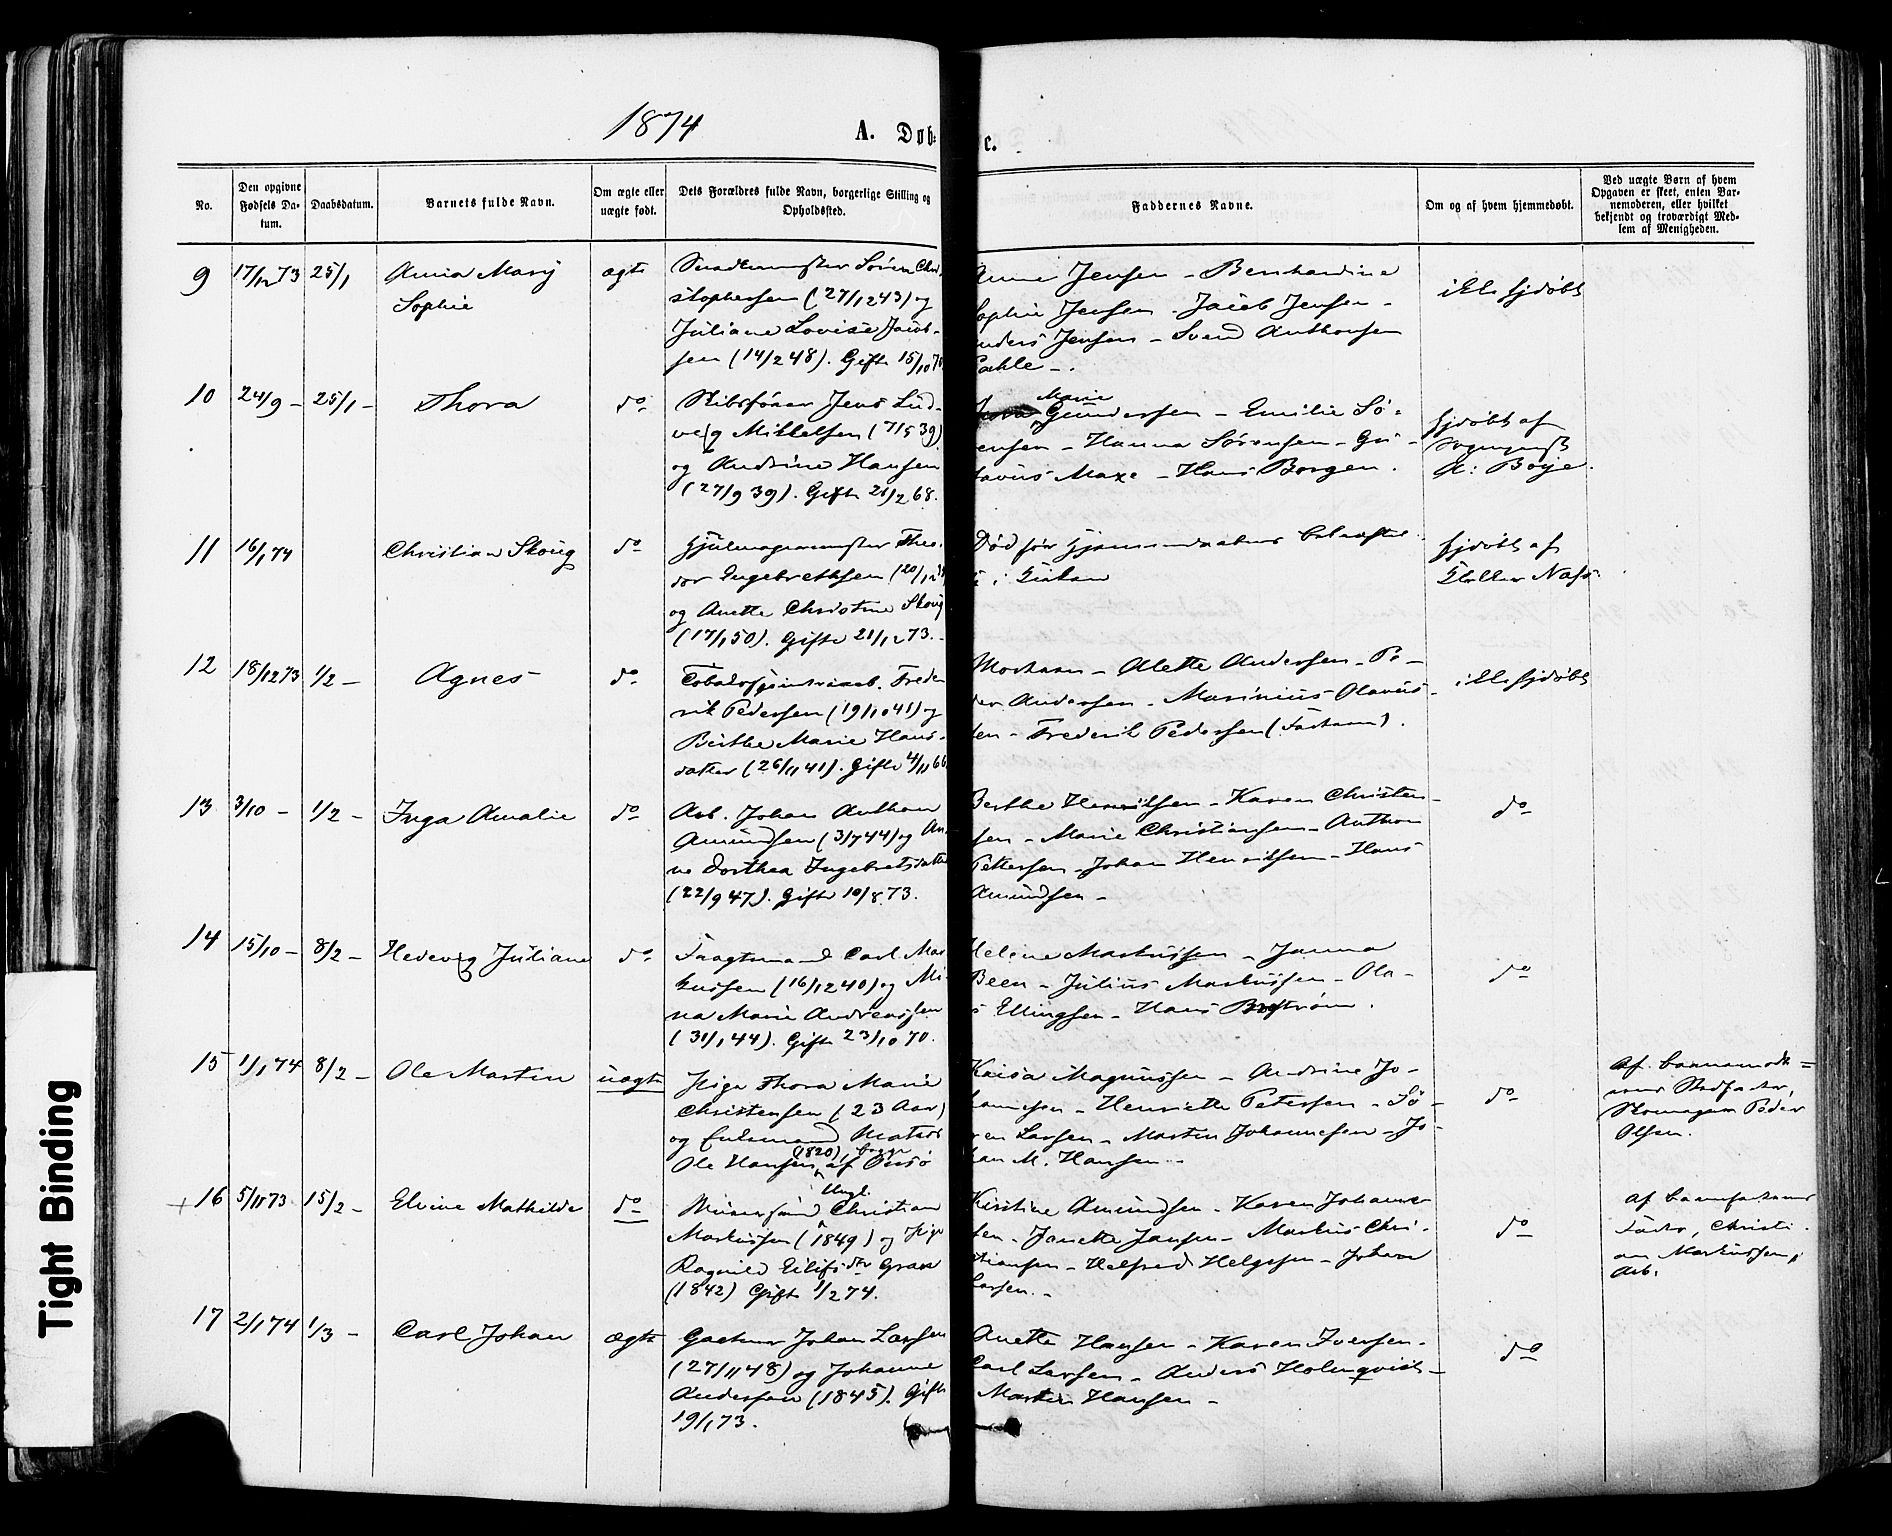 1874
A. Døb=
c.
No.
Den opgivne Fødsels Da-tum.
Daabsdatum.
Barnets fulde Navn.
Om ægte eller uægte født.
Dets Forældres fulde Navn, borgerlige Stilling og Opholdssted.
Faddernes Navne.
Om og af hvem hjemmedøbt.
Ved uægte Børn af hvem Opgaven er skeet, enten Bar-nemoderen, eller hvilket bekjendt og troværdigt Med-lem af Menigheden.
9 17/12 73 25/1 Anna Mary ægte Snedkermester Søren Chri-
Sophie stophersen (27/12 43) og
Juliane Lovise Jacob-
sen (14/2 48). Gifte 15/10 70
Anne Jensen - Bernhardine
Sophie Jensen - Jacob Jensen -
Anders Jensen - Svend Anthonsen
ikke hjdøbt
10 24/9 - 25/1 - Thora do Skibsfører Jens Lud-
vig Mikkelsen (7/5 39)
og Andrine Hansen
(27/9 39). Gifte 21/2 68.
Marie
Gundersen - Emilie Sø-
rensen - Hanna Sørensen - Gu-
stavus Maxe - Hans Borgen.
hjdøbt af
A: Boye.
11 16/1 74 Christian Skoug do Hjulmagermester Theo-
dor Ingebrethsen (20/12
og Anette Christine Skoug
(17/1 50). Gifte 21/12 73.
Død før Hjemmedaaben
i Kirken
hjdøbt af
12 18/12 73 1/2 - Agnes do Frede-
rik Pedersen (19/10 41) og
Birthe Marie Hans-
datter (26/11 41). Gifte 4/11 66
Moderen - Alette Andersen - Pe-
der Andersen - Marinius Olavus-
sen - Frederik Pedersen (Faderen).
ikke hjdøbt
13 3/10 - 1/2 - Inga Amalie do Arb. Johan Anthon
Amundsen (3/7 44) og An-
ne Dorthea Ingebretsdatter
(22/9 47). Gifte 10/8 73.
Berthe Henriksen - Karen Christen-
sen - Marie Christiansen - Anthon
Pettersen - Johan Henriksen - Hans
Amundsen -
do
14 15/10 - 8/2 - Hedevig Juliane do Fragtmand Carl Mar-
kussen (16/12 40) og Mi-
na Marie Andreassen
(31/1 44). Gifte 23/10 70.
Helene Markussen - Janna
Been - Julius Markussen - Ola-
s Ellingsen - Hans
do
15 1/1 74 8/2 - Ole Martin uægte Pige Thora Marie
Christensen (23 Aar)
og Enkemand Matros
(1820), begge
Ole Hansen af
Kaisa Magnussen - Andrine Jo-
hannesen - Henriette Petersen - Sø-
ren Larsen - Martin Johannesen - Jo-
han M. Hansen -
do
af Barnemode-
rens Stedfader,
Skomager Peder
Olsen.
+ 16 5/11 73 15/2 - Elvine Mathilde do Ungk.
Christian
Markussen (1849) og Pige
Ragnild Eilifsdtr Gran
(1842) Gift 1/2 74.
Kirstine Amundsen - Karen Johanne-
sen - Janette Jansen - Markus Chri-
stiansen - Helfred Helgesen - Johan
Larsen. -
do
af Barnefaderens
Fader, Christi-
an Markussen,
Arb.
17 2/1 74 1/3 - Carl Johan ægte Gartner Johan Larsen
(27/11 48) og Johanne
Andersen (1845). Gifte
19/1 73.
Anette Hansen - Karen Iversen -
Carl Larsen - Anders Holmqvist -
Martin Hansen -
do
Tight Binding